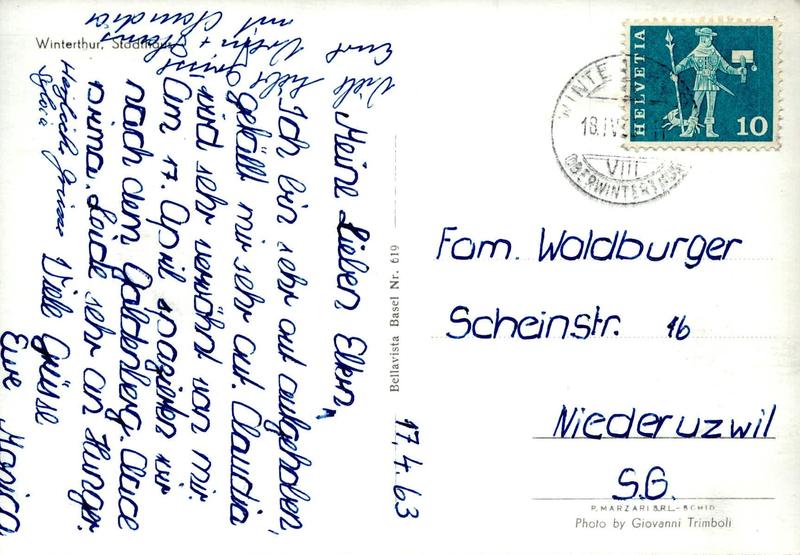 Winterthur, Stadthaus
Meine Lieben Eltern,
Ich bin sehr gut aufgehoben,
gefällt mir sehr gut. Claudia
wird sehr verwöhnt von mir.
Am 17. April spazierten wir
nach dem Galtenberg. Claice
prima. Leide sehr an Hunger.
Viele Grüsse
Eure Monica
Herzliche Grüsse
Sylvia
Viele liebe Grüsse
Euch
mit Claudia
17.4.63
Bellavista Basel Nr. 619
HELVETIA
10
WINTE
18.IV.
VIII
OBERWINTERTHUR
Fam. Waldburger
Scheinstr. 16
Niederuzwil
S.G.
P. MARZARI S.R.L. - SCHIO
Photo by Giovanni Trimboli